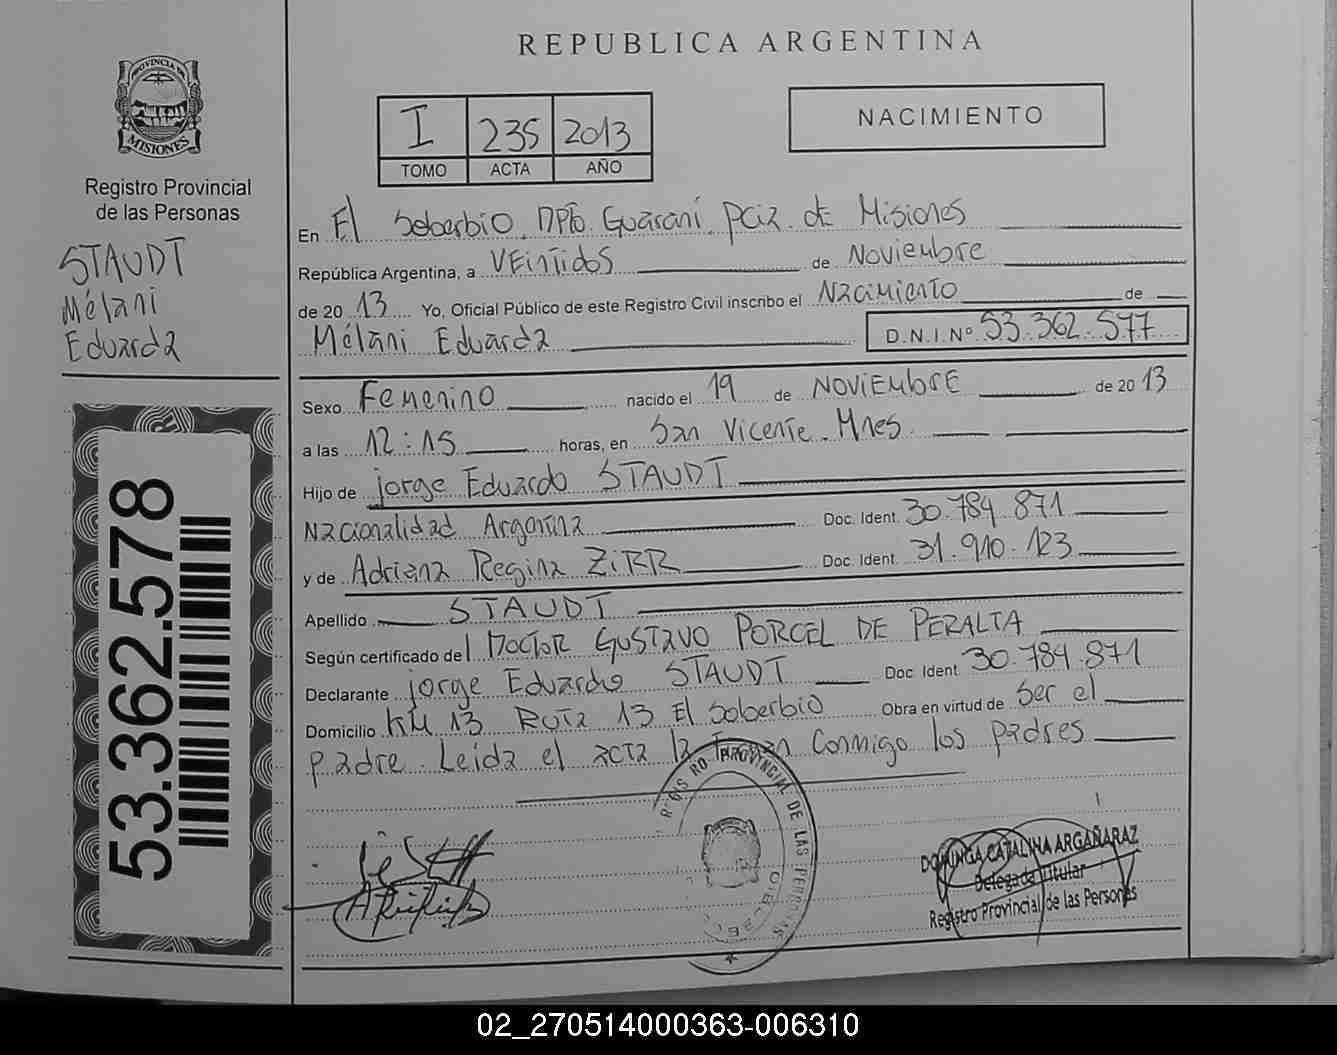 REPUBLICA ARGENTINA
PROVINCIA DE
MISIONES
Registro Provincial
de las Personas
STAUDT
Mélani
Eduarda
53.362.578
I 235 2013
TOMO ACTA AÑO
NACIMIENTO
En El Soberbio. DPto. Guaraní. pcia. de Misiones
República Argentina, a VEintidos de Noviembre
de 20 13 Yo, Oficial Público de este Registro Civil inscribo el Nacimiento de
Mélani Eduarda D.N.I. Nº 53.362.577
Sexo Femenino nacido el 19 de NOVIEMbrE de 20 13
a las 12:15 horas, en San Vicente. Mnes.
Hijo de jorge Eduardo STAUDT
Nacionalidad Argentina Doc. Ident. 30.784.871
y de Adriana Regina ZiRR Doc. Ident. 31.910.123
Apellido STAUDT
Según certificado del DOCTOR GUSTAVO PORCEL DE PERALTA
Declarante jorge Eduardo STAUDT Doc Ident 30.784.871
Domicilio KM 13 RUTA 13 El Soberbio Obra en virtud de Ser el
padre. Leida el acta la firman Conmigo los padres
REGISTRO PROVINCIAL DE LAS PERSONAS
DOMINGA CATALINA ARGAÑARAZ
Delegada Titular
Registro Provincial de las Personas
02_270514000363-006310